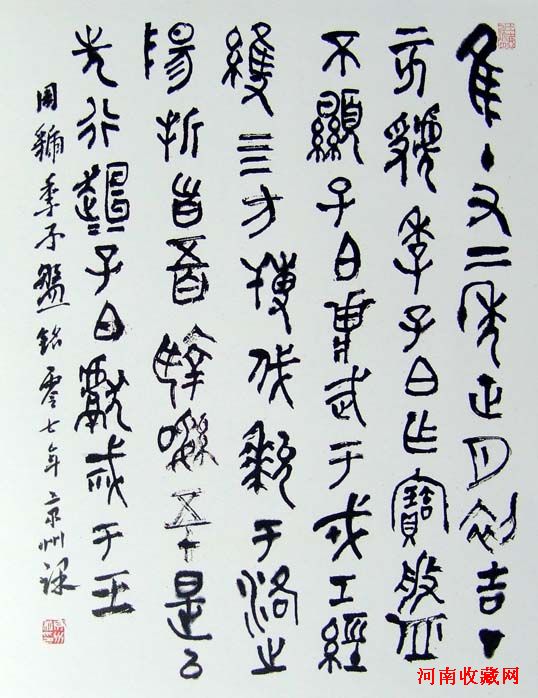 隹十又二年正月初吉丁
亥虢季子白乍寶盤
不顯子白壯武于戎工經
維四方搏伐于洛之
陽折首五百執訊五十是以
先行趄子白獻戒于王
周虢季子盤銘零七年京州課
河南收藏网